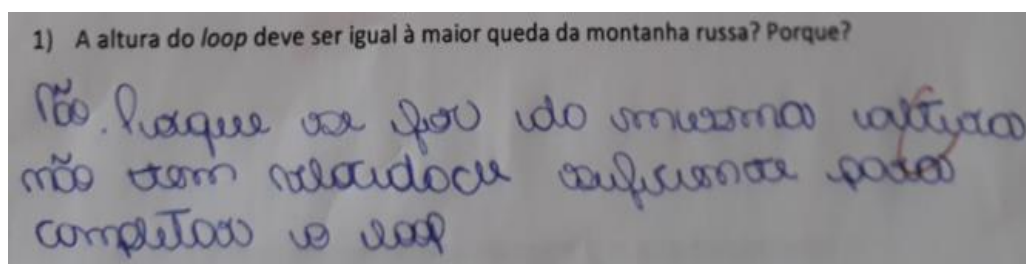 1) A altura do loop deve ser igual à maior queda da montanha russa? Porque?
Não. Porque se for da mesma altura
não tem velocidade suficiente para
completar o loop